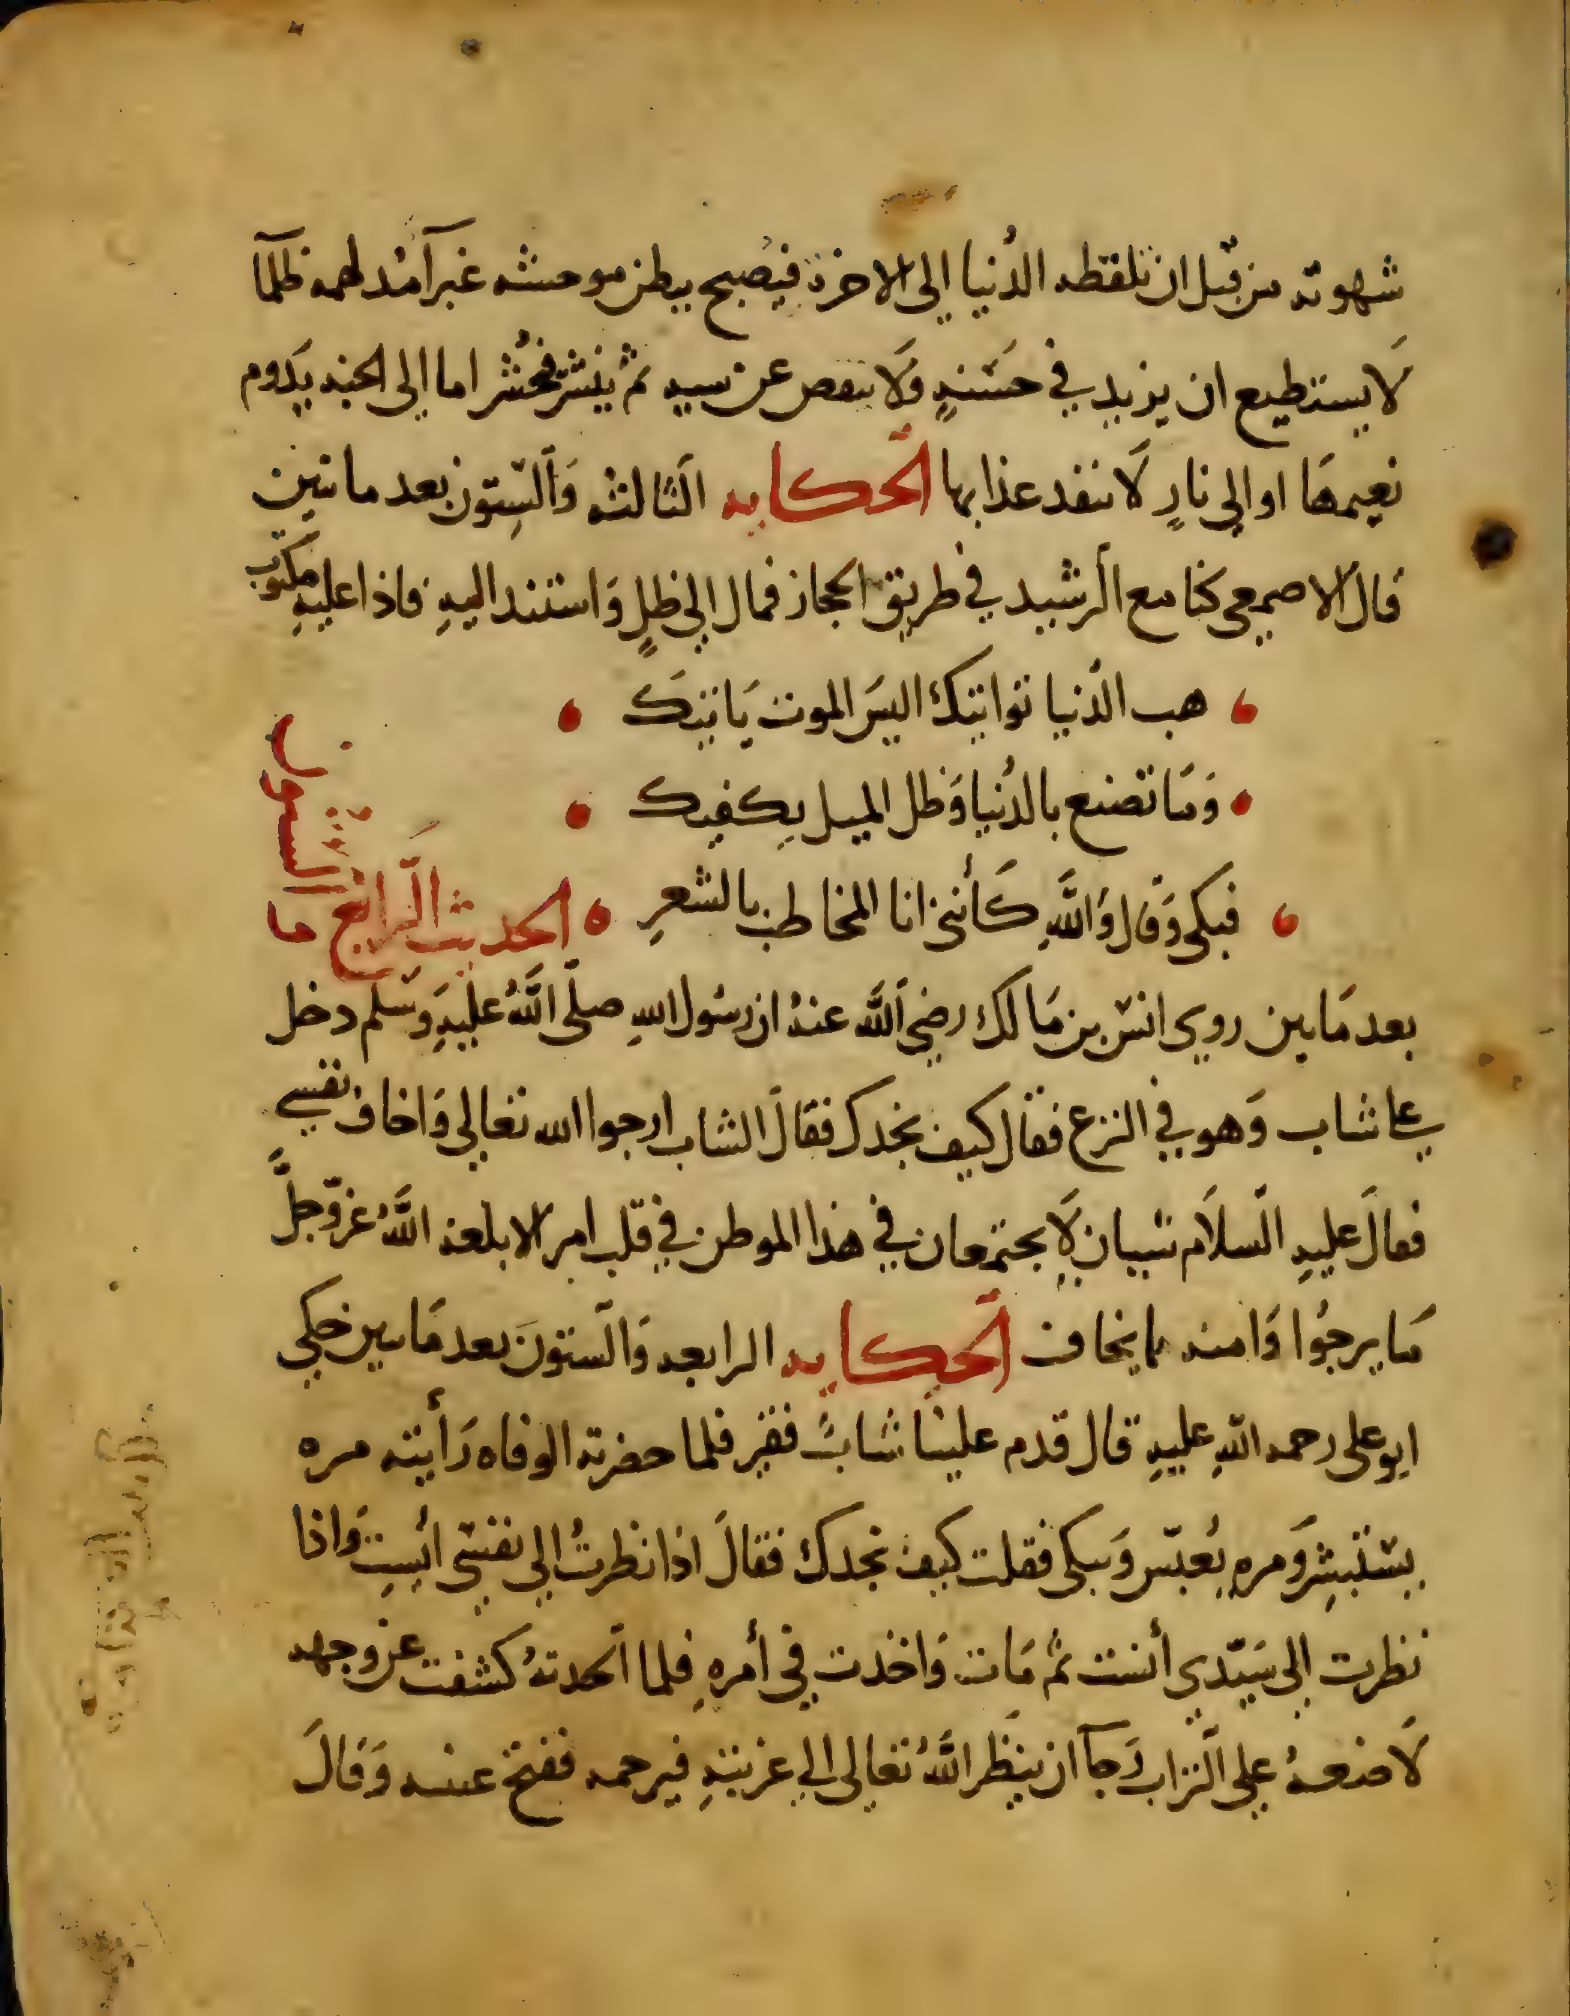 شهوته من قبل ان تلفظه الدُنيا الى الاخرة فيُصبح ببطن موحشه غبرآ مُدلهمه ظلمآ
لَا يستطيع ان يزيد في حسَنةٍ وَلَا ينقص عن سيه ثم يُنشر فحُشر اما الى الجنه يَدوم
نعيمهَا او الى نارٍ لَا ينفد عذابها الحكايه الثالثه وَالسِتون بعد مايتين
قال الاصمعي كنا مع الرشيد في طريق الحجاز فمال الى ظلٍ وَاستند اليهِ فاذا عليهِ مكتوب
هب الدُنيا تواتيك اليسَ الموت يَاتيك
وَمَا تصنع بالدُنيا وَظل الميل يكفيك
فبكى وَقال وَاللَّهِ كَأنني انا المخاطب بالشعرِ الحديث الرابع
والستون
ما
بعد مَايين روي انس بن مَالك رضي اللَّه عنهُ ان رسُول اللهِ صلّى اللَّهُ عليهِ وَسَلم دخل
على شاب وَهو في النزع فقال كيف تجدك فقالَ الشاب ارجوا الله تعالى وَاخاف نفسي
فقالَ عليهِ السلَام شيان لَا يجتمعان في هذا الموطن في قلب امر الا بلغه اللَّهُ عزّ وَجلَّ
مَا يرجوُا وَامنه مما يخاف الحكايه الرابعه وَالستونَ بعد مَايين حكي
ابو على رحمه اللهِ عليهِ قال قدم علينَا شابٌ فقير فلما حضرته الوفاه رَأيته مره
يستبشِر وَمرهٍ يُعبّس وَيبكى فقلت كيف تجدك فقالَ اذا نظرتُ الى نفسي أيسِت وَاذا
نظرت الى سَيّدي أنست ثمُ مَات وَاخذت في أمرهِ فلما الحدتهُ كشفت عن وجهه
لَاضعهُ على التراب رَجآ ان ينظر اللَّهُ تعالى الى غربتهِ فيرحمه ففتح عينه وَقالَ